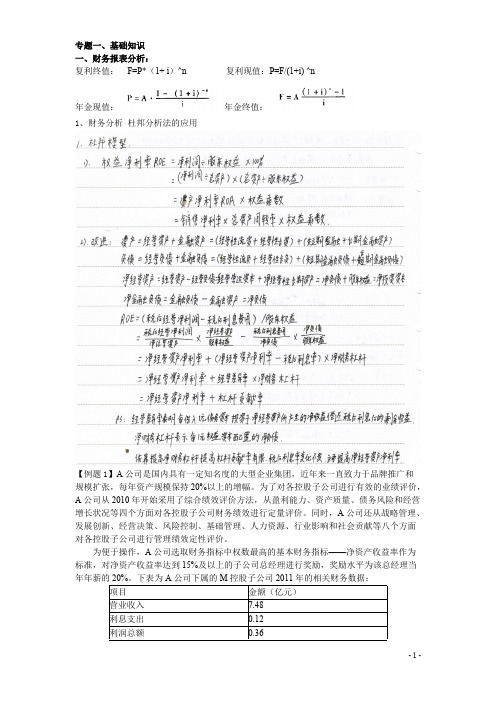 专题一、基础知识
一、财务报表分析：
复利终值： F=P*（1+ i）^n 复利现值：P=F/(1+i) ^n
年金现值： P = A · (1 - (1 + i)^-n) / i 年金终值： F = A ((1 + i)^n - 1) / i
1、财务分析 杜邦分析法的应用
1. 杜邦模型
1). 权益净利率ROE = 净利润÷股东权益 ×100%
= (净利润÷总资产) × (总资产÷股东权益)
= 资产净利率ROA × 权益乘数
= 销售净利率 × 总资产周转率 × 权益乘数.
2). 改进: 资产=经营资产+金融资产
负债=经营负债+金融负债
净经营资产=经营资产-经营负债
净金融负债=金融负债-金融资产=净负债
ROE=(税后经营净利润-税后利息费用)/股东权益
= 税后经营净利润/净经营资产 × 净经营资产/股东权益 - 税后利息费用/净负债 × 净负债/股东权益
= 净经营资产净利率 + (净经营资产净利率-税后利息率) × 净财务杠杆
= 净经营资产净利率 + 经营差异率 × 净财务杠杆
= 净经营资产净利率 + 杠杆贡献率
【例题 1】A 公司是国内具有一定知名度的大型企业集团，近年来一直致力于品牌推广和
规模扩张，每年资产规模保持 20%以上的增幅。为了对各控股子公司进行有效的业绩评价，
A 公司从 2010 年开始采用了综合绩效评价方法，从盈利能力、资产质量、债务风险和经营
增长状况等四个方面对各控股子公司财务绩效进行定量评价。同时，A 公司还从战略管理、
发展创新、经营决策、风险控制、基础管理、人力资源、行业影响和社会贡献等八个方面
对各控股子公司进行管理绩效定性评价。
为便于操作，A 公司选取财务指标中权数最高的基本财务指标——净资产收益率作为
标准，对净资产收益率达到 15%及以上的子公司总经理进行奖励，奖励水平为该总经理当
年年薪的 20%。下表为 A 公司下属的 M 控股子公司 2011 年的相关财务数据：
项目 金额（亿元）
营业收入 7.48
利息支出 0.12
利润总额 0.36
- 1 -